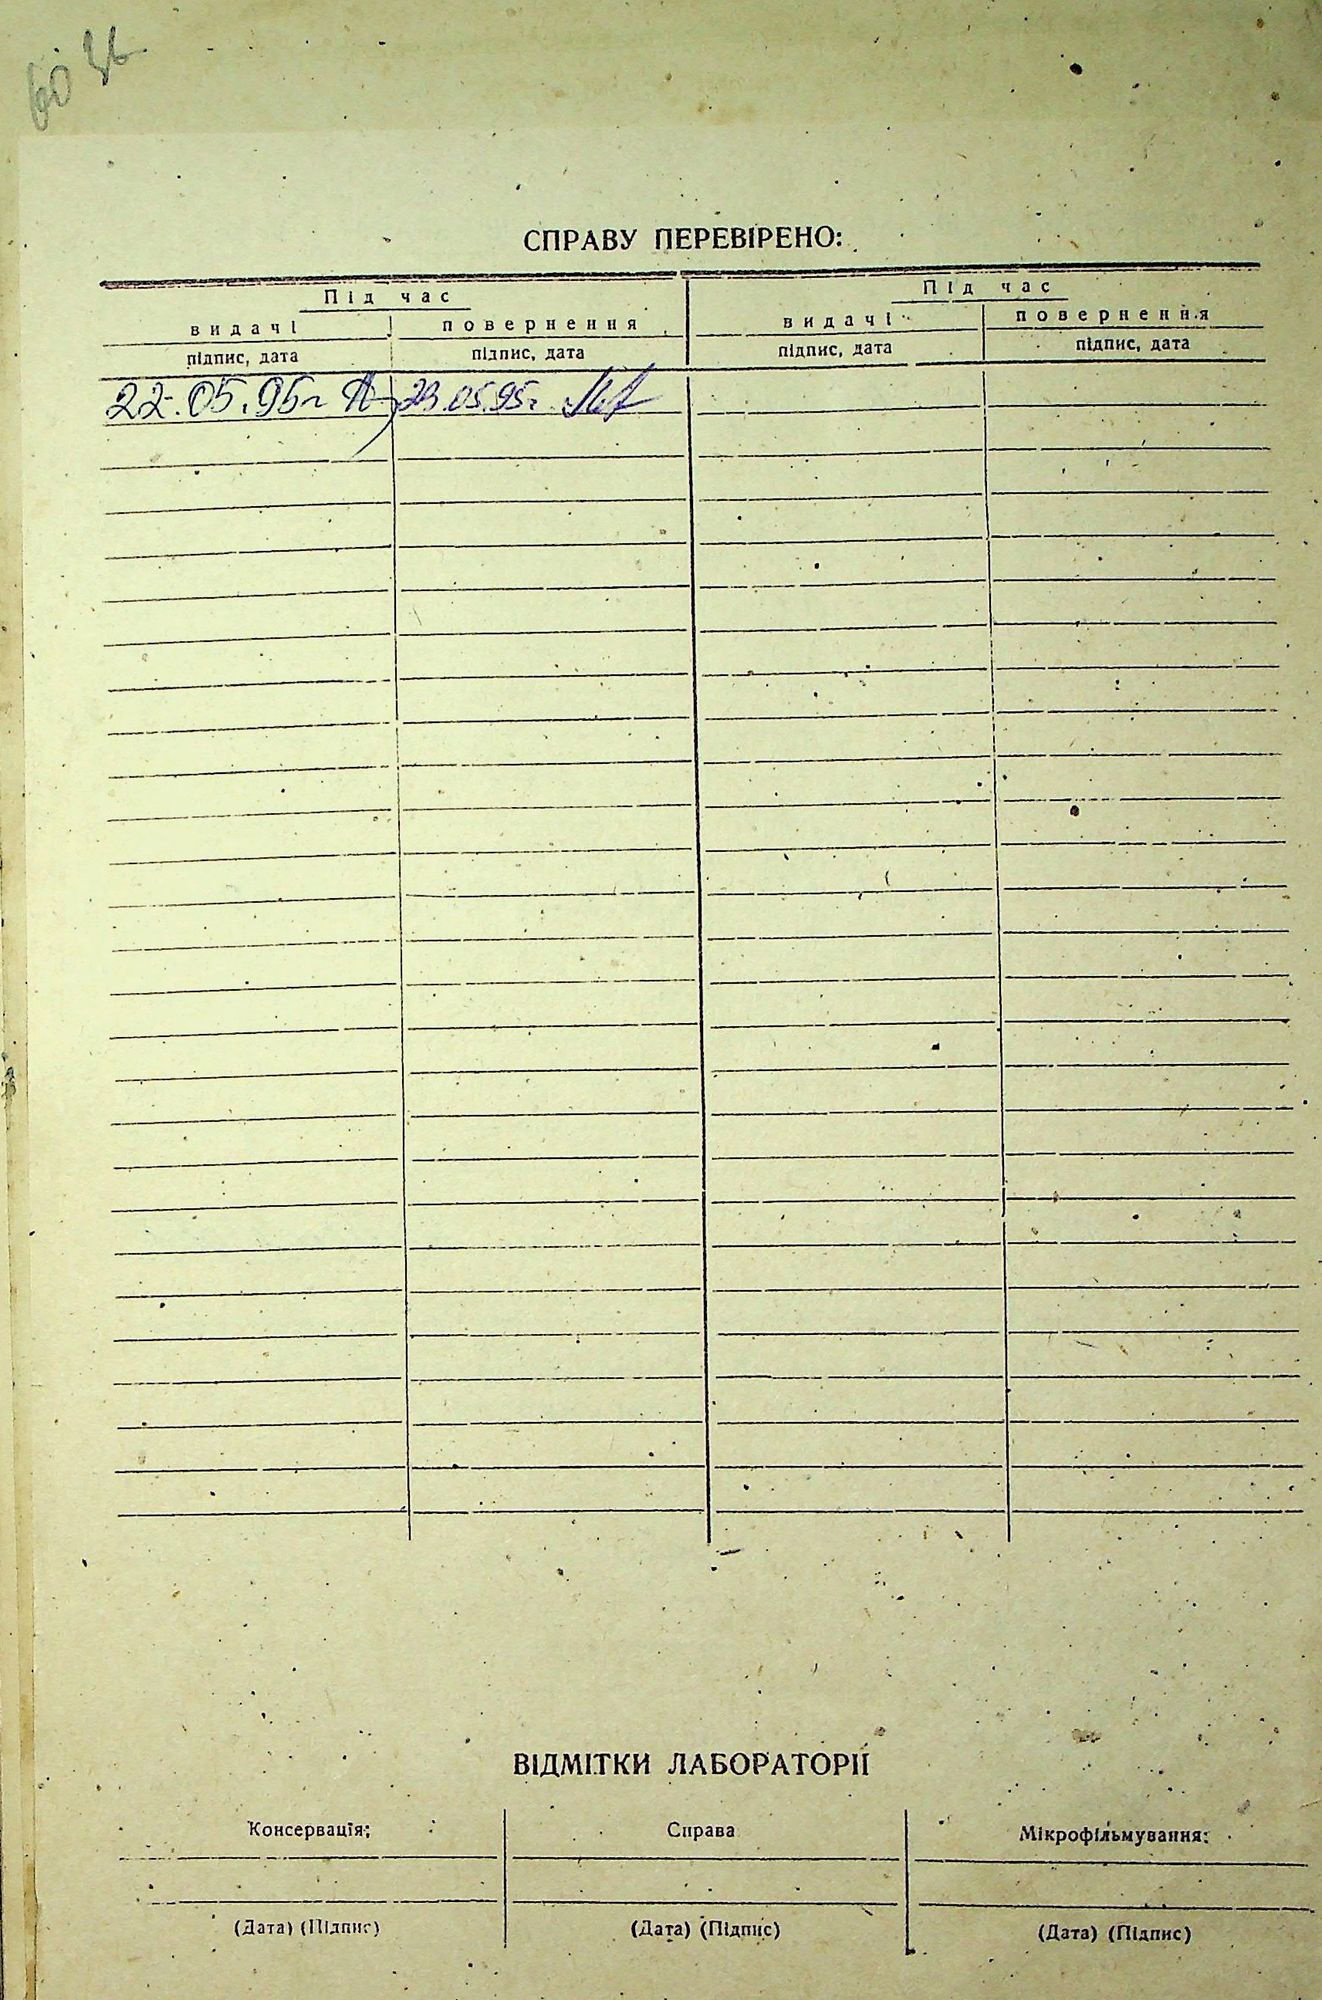 СПРАВУ ПЕРЕВІРЕНО:
Під час Під час
видачі повернення видачі повернення
підпис, дата підпис, дата підпис, дата підпис, дата
22.05.95г 23.05.95г
ВІДМІТКИ ЛАБОРАТОРІЇ
Консервація: Справа Мікрофільмування:
(Дата) (Підпис) (Дата) (Підпис) (Дата) (Підпис)